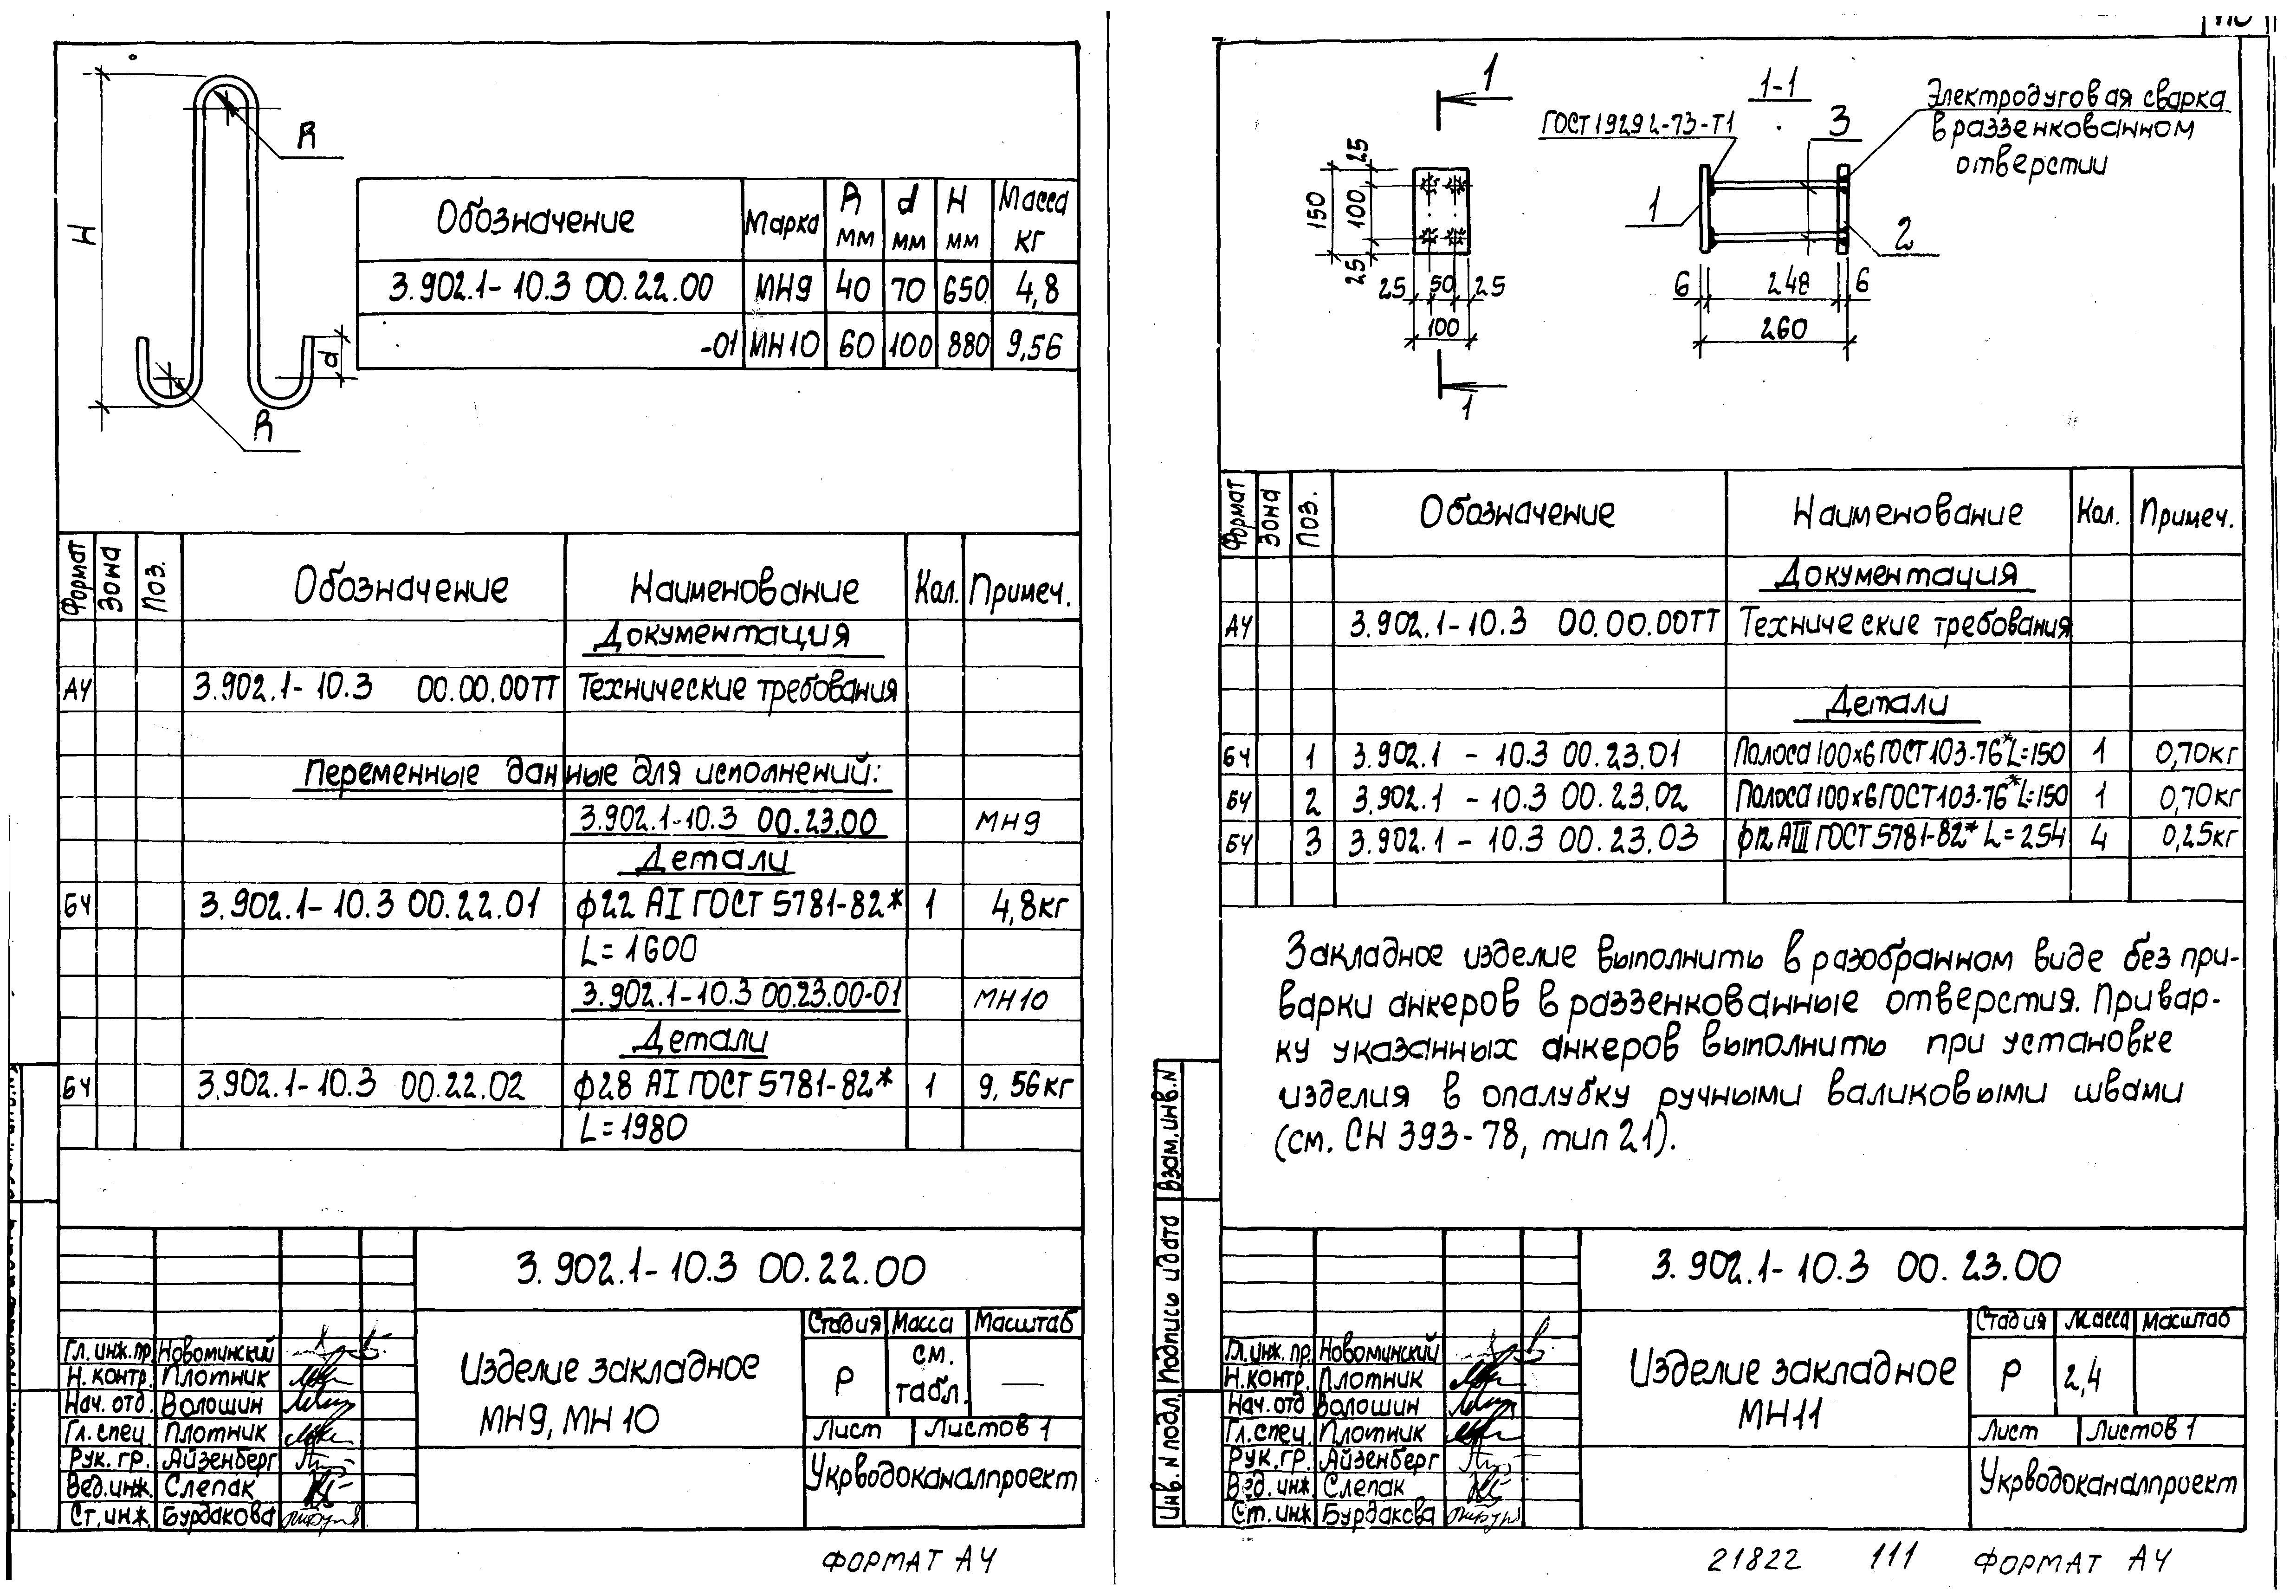 H
R
R
d
Обозначение Марка R мм d мм H мм Масса кг
3.902.1-10.3 00.22.00 МН9 40 70 650 4,8
-01 МН10 60 100 880 9,56
Формат Зона Поз. Обозначение Наименование Кол. Примеч.
Документация
А4 3.902.1-10.3 00.00.00ТТ Технические требования
Переменные данные для исполнений:
3.902.1-10.3 00.23.00 МН9
Детали
БЧ 3.902.1-10.3 00.22.01 ф22 АI ГОСТ 5781-82* 1 4,8кг
L=1600
3.902.1-10.3 00.23.00-01 МН10
Детали
БЧ 3.902.1-10.3 00.22.02 ф28 АI ГОСТ 5781-82* 1 9,56кг
L=1980
3.902.1-10.3 00.22.00
Гл. инж. пр. Новоминский
Н. контр. Плотник
Нач. отд. Волошин
Гл. спец. Плотник
Рук. гр. Айзенберг
Вед. инж. Слепак
Ст. инж. Бурдакова
Изделие закладное
МН9, МН 10
Стадия Масса Масштаб
Р см. табл. —
Лист Листов 1
Укрводоканалпроект
ФОРМАТ А4
1
1
1-1
ГОСТ 19292-73-Т1
3
Электродуговая сварка
в раззенкованном
отверстии
1
2
25
150 100
25
25 50 25
100
6 248 6
260
Формат Зона Поз. Обозначение Наименование Кол. Примеч.
Документация
А4 3.902.1-10.3 00.00.00ТТ Технические требования
Детали
БЧ 1 3.902.1 - 10.3 00.23.01 Полоса 100х6 ГОСТ 103-76* L=150 1 0,70кг
БЧ 2 3.902.1 - 10.3 00.23.02 Полоса 100х6 ГОСТ 103-76* L=150 1 0,70кг
БЧ 3 3.902.1 - 10.3 00.23.03 ф12 АIII ГОСТ 5781-82* L=254 4 0,25кг
Закладное изделие выполнить в разобранном виде без при-
варки анкеров в раззенкованные отверстия. Привар-
ку указанных анкеров выполнить при установке
изделия в опалубку ручными валиковыми швами
(см. СН 393-78, тип 21).
Инв. N подл. Подпись и дата Взам. инв. N
3.902.1-10.3 00.23.00
Гл. инж. пр. Новоминский
Н. контр. Плотник
Нач. отд Волошин
Гл. спец. Плотник
Рук. гр. Айзенберг
Вед. инж. Слепак
Ст. инж. Бурдакова
Изделие закладное
МН11
Стадия Масса Масштаб
Р 2,4
Лист Листов 1
Укрводоканалпроект
21822 111 ФОРМАТ А4